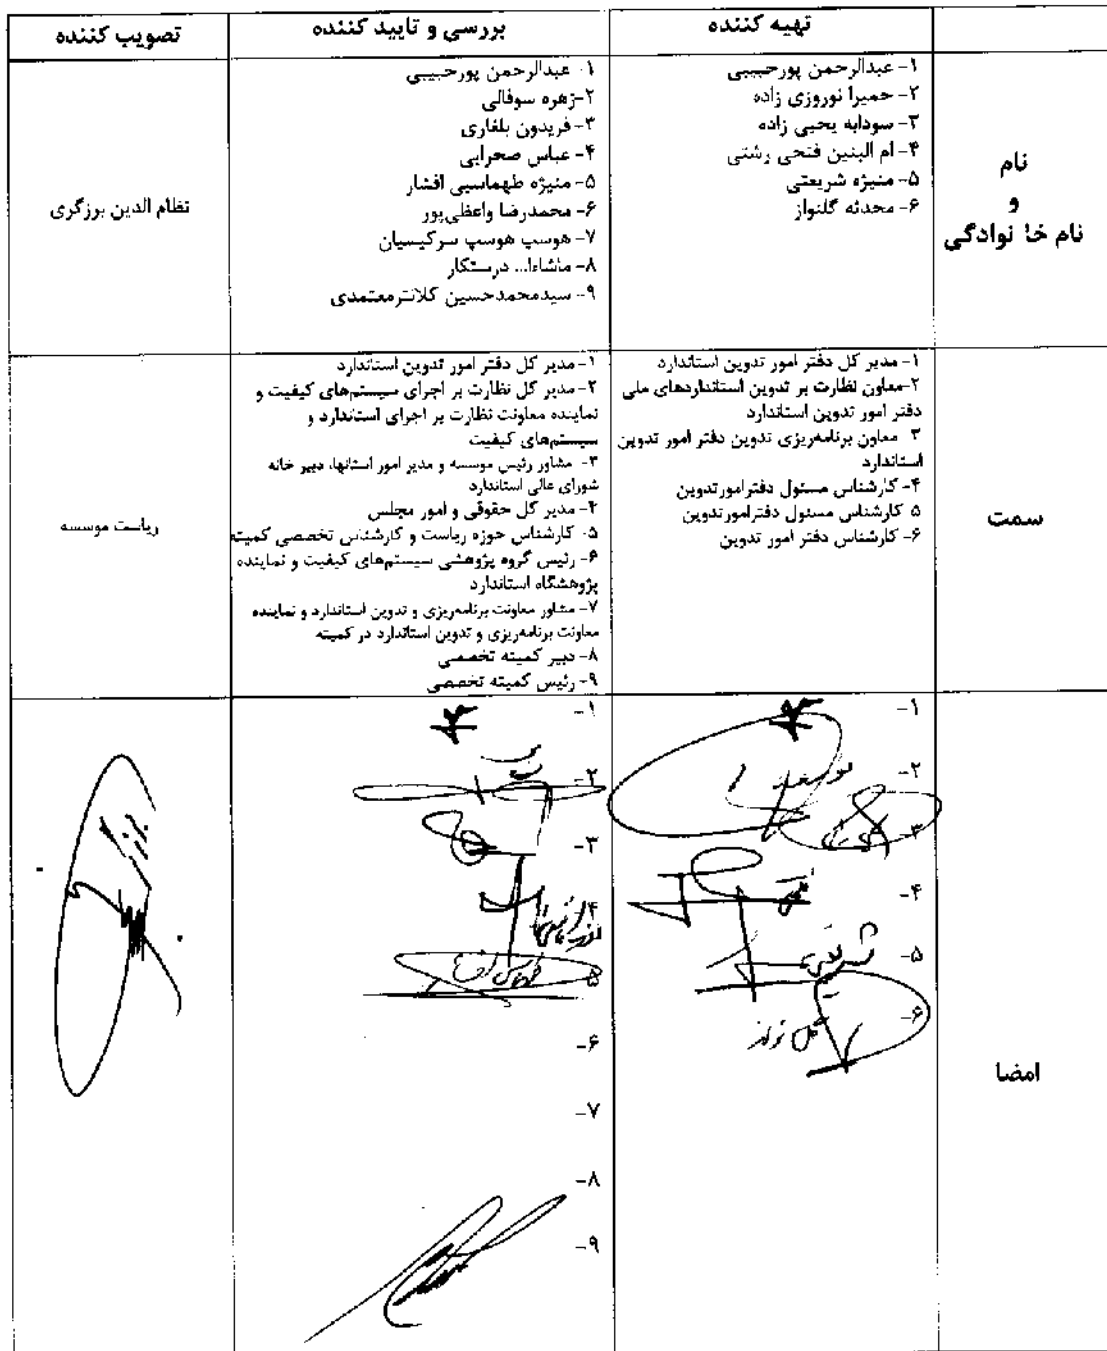 تهیه کننده
بررسی و تایید کننده
تصویب کننده
نام
و
نام خانوادگی
۱- عبدالرحمن پورحبیبی
۲- حمیرا نوروزی زاده
۳- سودابه یحیی زاده
۴- ام البنین فتحی رشتی
۵- منیژه شریعتی
۶- محدثه گلنواز
۱- عبدالرحمن پورحبیبی
۲-زهره سوفالی
۳- فریدون بلغاری
۴- عباس صحرایی
۵- منیژه طهماسبی افشار
۶- محمدرضا واعظی‌پور
۷- هوسپ هوسپ سرکیسیان
۸- ماشاءا... درستکار
۹- سیدمحمدحسین کلانترمعتمدی
نظام الدین برزگری
سمت
۱- مدیر کل دفتر امور تدوین استاندارد
۲-معاون نظارت بر تدوین استانداردهای ملی
دفتر امور تدوین استاندارد
۳ معاون برنامه‌ریزی تدوین دفتر امور تدوین
استاندارد
۴- کارشناس مسئول دفترامورتدوین
۵ کارشناس مسئول دفترامورتدوین
۶- کارشناس دفتر امور تدوین
۱-مدیر کل دفتر امور تدوین استاندارد
۲-مدیر کل نظارت بر اجرای سیستم‌های کیفیت و
نماینده معاونت نظارت بر اجرای استاندارد و
سیستم‌های کیفیت
۳- مشاور رئیس موسسه و مدیر امور استانها، دبیر خانه
شورای عالی استاندارد
۴- مدیر کل حقوقی و امور مجلس
۵- کارشناس حوزه ریاست و کارشناس تخصصی کمیته
۶- رئیس گروه پژوهشی سیستم‌های کیفیت و نماینده
پژوهشگاه استاندارد
۷- مشاور معاونت برنامه‌ریزی و تدوین استاندارد و نماینده
معاونت برنامه‌ریزی و تدوین استاندارد در کمیته
۸- دبیر کمیته تخصصی
۹- رئیس کمیته تخصصی
ریاست موسسه
امضا
۱-
۲-
۳-
۴-
۵-
۶-
۱-
۲-
۳-
۴-
۵-
۶-
۷-
۸-
۹-